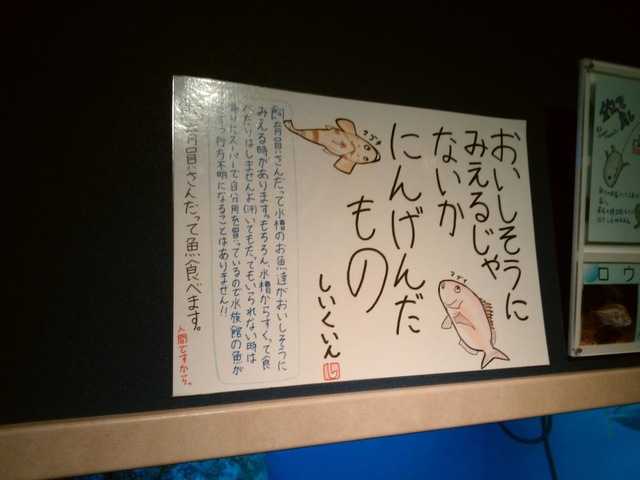 おいしそうに
みえるじゃ
ないか
にんげんだ
もの
しいくいん
マダイ
マゴチ
飼育員さんだって水槽のお魚達がおいしそうに
みえる時があります。もちろん、水槽からすくって食
べたりはしませんよ(汗)いてもたってもいられない時は
帰りにスーパーで自分用を買っているので水族館の魚が
行方不明になることはありません!!
飼育員さんだって魚食べます。
人間ですから。
ロウ